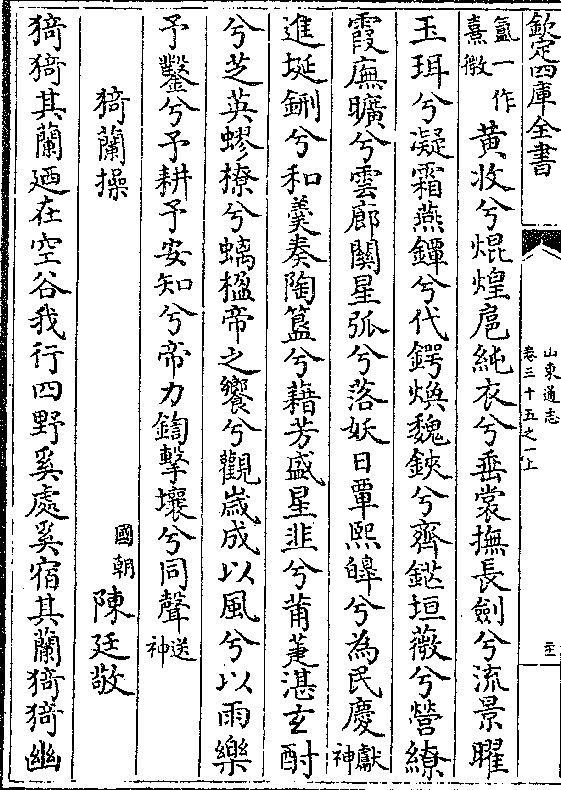 欽定四庫全書
山東通志
卷三十五之一上
氤一作
熹微
黄收兮焜煌扈純衣兮垂裳撫長劍兮流景曜
玉珥兮凝霜燕鐔兮代鍔煥魏鋏兮齊鍖垣薇兮營繚
霞廡曠兮雲廊闕星弧兮落妖日覃熙皥兮為民慶獻神
進埏鉶兮和羮奏陶簋兮藉芳盛星韭兮莆萐湛玄酎
兮芝英蟉橑兮螭楹帝之饗兮觀嵗成以風兮以雨樂
予鑿兮予耕予安知兮帝力鋾擊壤兮同聲送神
猗蘭操
國朝陳廷敬
猗猗其蘭廼在空谷我行四野奚處奚宿其蘭猗猗幽